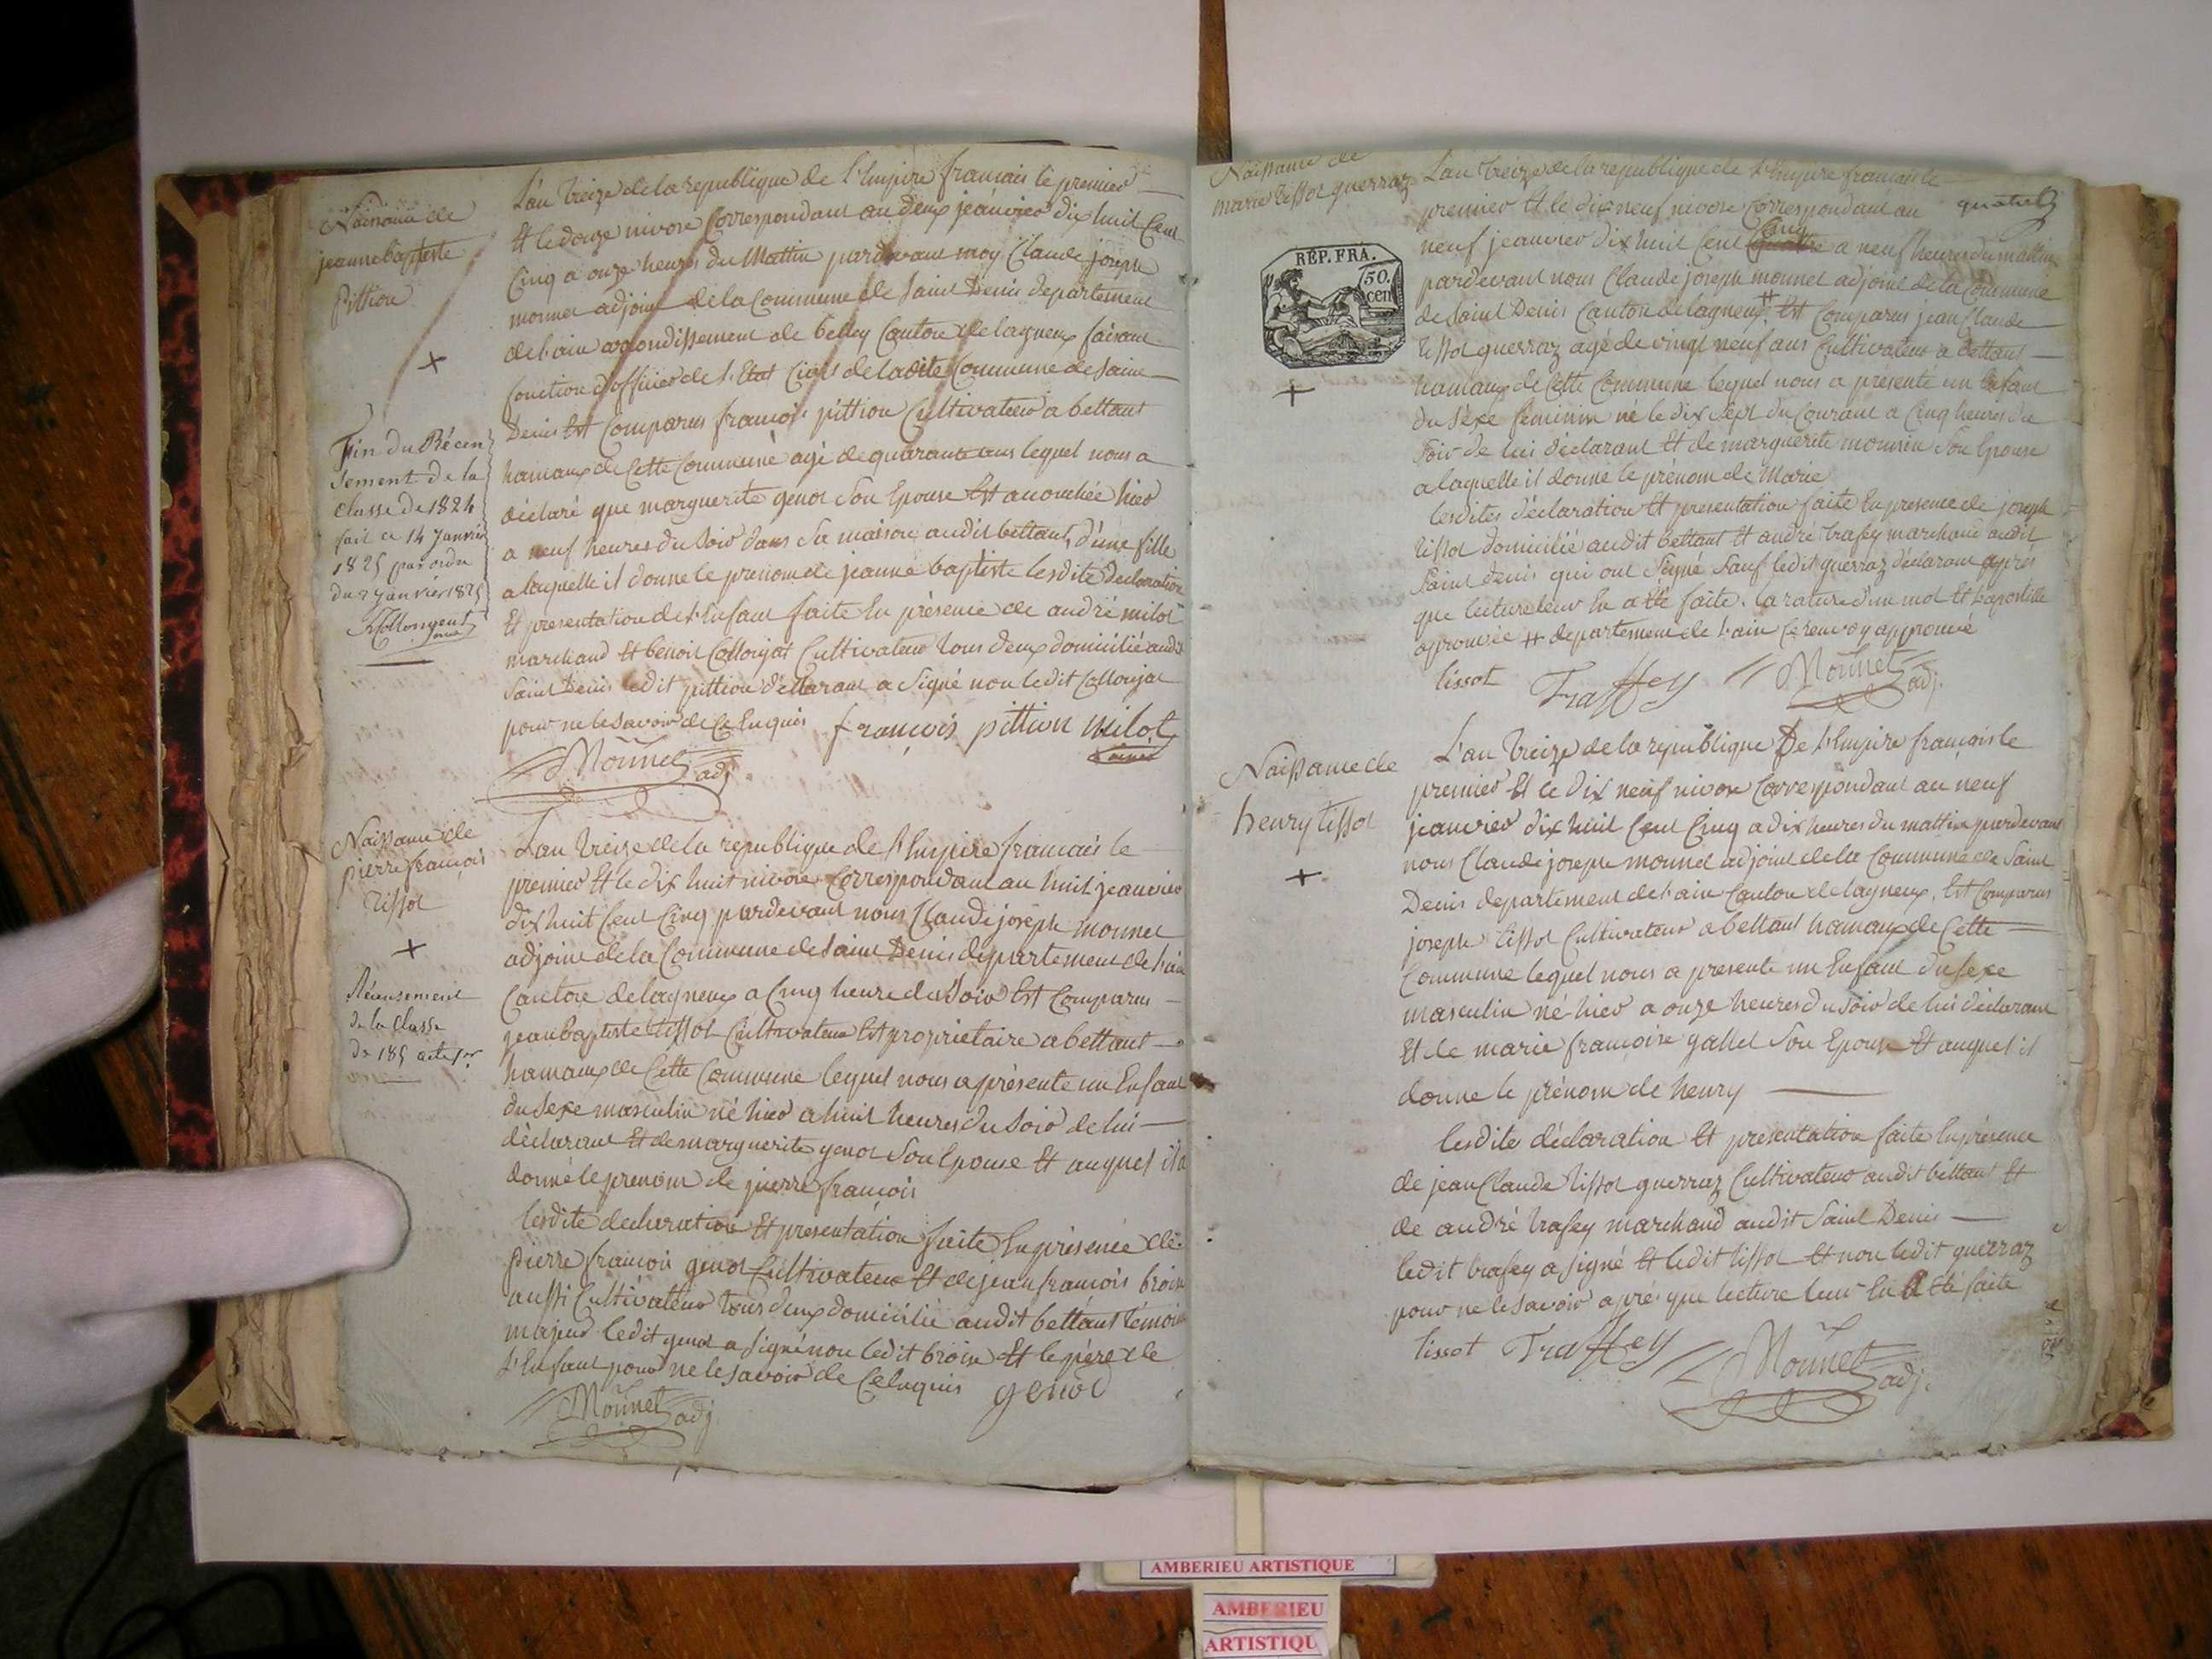 Naissance de
jeanne baptiste
Pittion
L'an treize de la republique de l'Empire francais le premier
Et le douze nivose Correspondant au deux jeanvier dix huit Cent
Cinq a onze heures du Mattin pardevant moy Claude joseph
monnet adjoint de la Commune de Saint Denis departement
de l'ain arrondissement de belley Canton de lagneux faisant
fonction d'officier de l'Etat Civil de ladite Commune de Saint
Denis Est Comparus françois pittion Cultivateur a bettant
hamaux de Cette Commune agé de quarante ans lequel nous a
déclaré que marguerite genod Son Epouse Est accouchée hier
a neuf heures du Soir dans Sa maison audit bettant, d'une fille
a laquelle il donne le prenom de jeanne baptiste lesdite declaration
Et presentation de l'Enfant faite En présence de andré milot
marchand Et benoit Collonjat Cultivateur tous deux domicilié audit
Saint Denis ledit pittion déclarant a Signé non ledit Collonjat
pour ne le Savoir de Ce Enquis françois pittion milot
Monnet adj
Fin du Récen
sement de la
classe de 1824
fait ce 14 Janvier
1825 par ordre
du 2 Janvier 1825
Naissance de
pierre françois
Tissot
Récensement
de la Classe
de 185
L'an treize de la republique de l'Empire francais le
premier Et le dix huit nivose Correspondant au huit jeanvier
dix huit Cent Cinq pardevant nous Claude joseph monnet
adjoint de la Commune de Saint Denis departement de l'ain
Canton de lagneux a Cinq heure du Soir Est Comparus
jean baptiste tissot Cultivateur Est proprietaire a bettant
hamaux de Cette Commune lequel nous a présenté un Enfant
du Sexe masculin né hier a huit heures du Soir de lui
déclarant Et de marguerite genod Son Epouse Et auquel il a
donné le prenom de pierre françois
lesdite declaration Et presentation faite En présence de
pierre françois genod Cultivateur Et de jean francois broin
aussi Cultivateur tous deux domicilié audit bettant témoin
majeur ledit genod a Signé non ledit broin Et le père de
l'Enfant pour ne le Savoir de Ce Enquis genod
Monnet adj
Naissance de
marie tissot guerraz
RÉP. FRA.
50.
cen
L'an treize de la republique de l'Empire francais le
premier Et le dix neuf nivose Correspondant au
neuf jeanvier dix huit Cent Cinq a neuf heures du mattin
pardevant nous Claude joseph monnet adjoint de la Commune
de Saint Denis Canton de lagneux # Est Comparus jean Claude
tissot guerraz agé de vingt neuf ans Cultivateur a bettant
hamaux de Cette Commune lequel nous a présenté un Enfant
du Sexe feminin né le dix Sept du Courant a Cinq heures du
Soir de lui déclarant Et de marguerite Son Epouse
a laquelle il donne le prénom de Marie
lesdites déclaration Et presentation faite En presence de joseph
tissot domicilié audit bettant Et andré trafey marchand audit
Saint denis qui ont Signé Sauf ledit guerraz déclarant après
que lecture leur En a été faite. la rature d'un mot Et l'apostille
aprouvée # departement de l'ain Ce renvoy approuvé
tissot Traffey Monnet adj.
Naissance de
henry tissot
L'an treize de la république De l'Empire français le
premier Et le dix neuf nivose Correspondant au neuf
jeanvier dix huit Cent Cinq a dix heures du mattin pardevant
nous Claude joseph monnet adjoint de la Commune de Saint
Denis departement de l'ain Canton de lagneux, Est Comparus
joseph tissot Cultivateur a bettant hamaux de Cette
Commune lequel nous a presenté un Enfant du Sexe
masculin né hier a onze heures du Soir de lui déclarant
Et de marie francoise gallet Son Epouse Et auquel il
donne le prénom de henry
lesdite déclaration Et presentation faite En présence
de jean Claude tissot guerraz Cultivateur audit bettant Et
de andré trafey marchand audit Saint Denis
ledit trafey a signé Et ledit tissot Et non ledit guerraz
pour ne le Savoir après que lecture leur En a été faite
tissot Traffey Monnet adj.
AMBERIEU ARTISTIQUE
AMBERIEU
ARTISTIQU